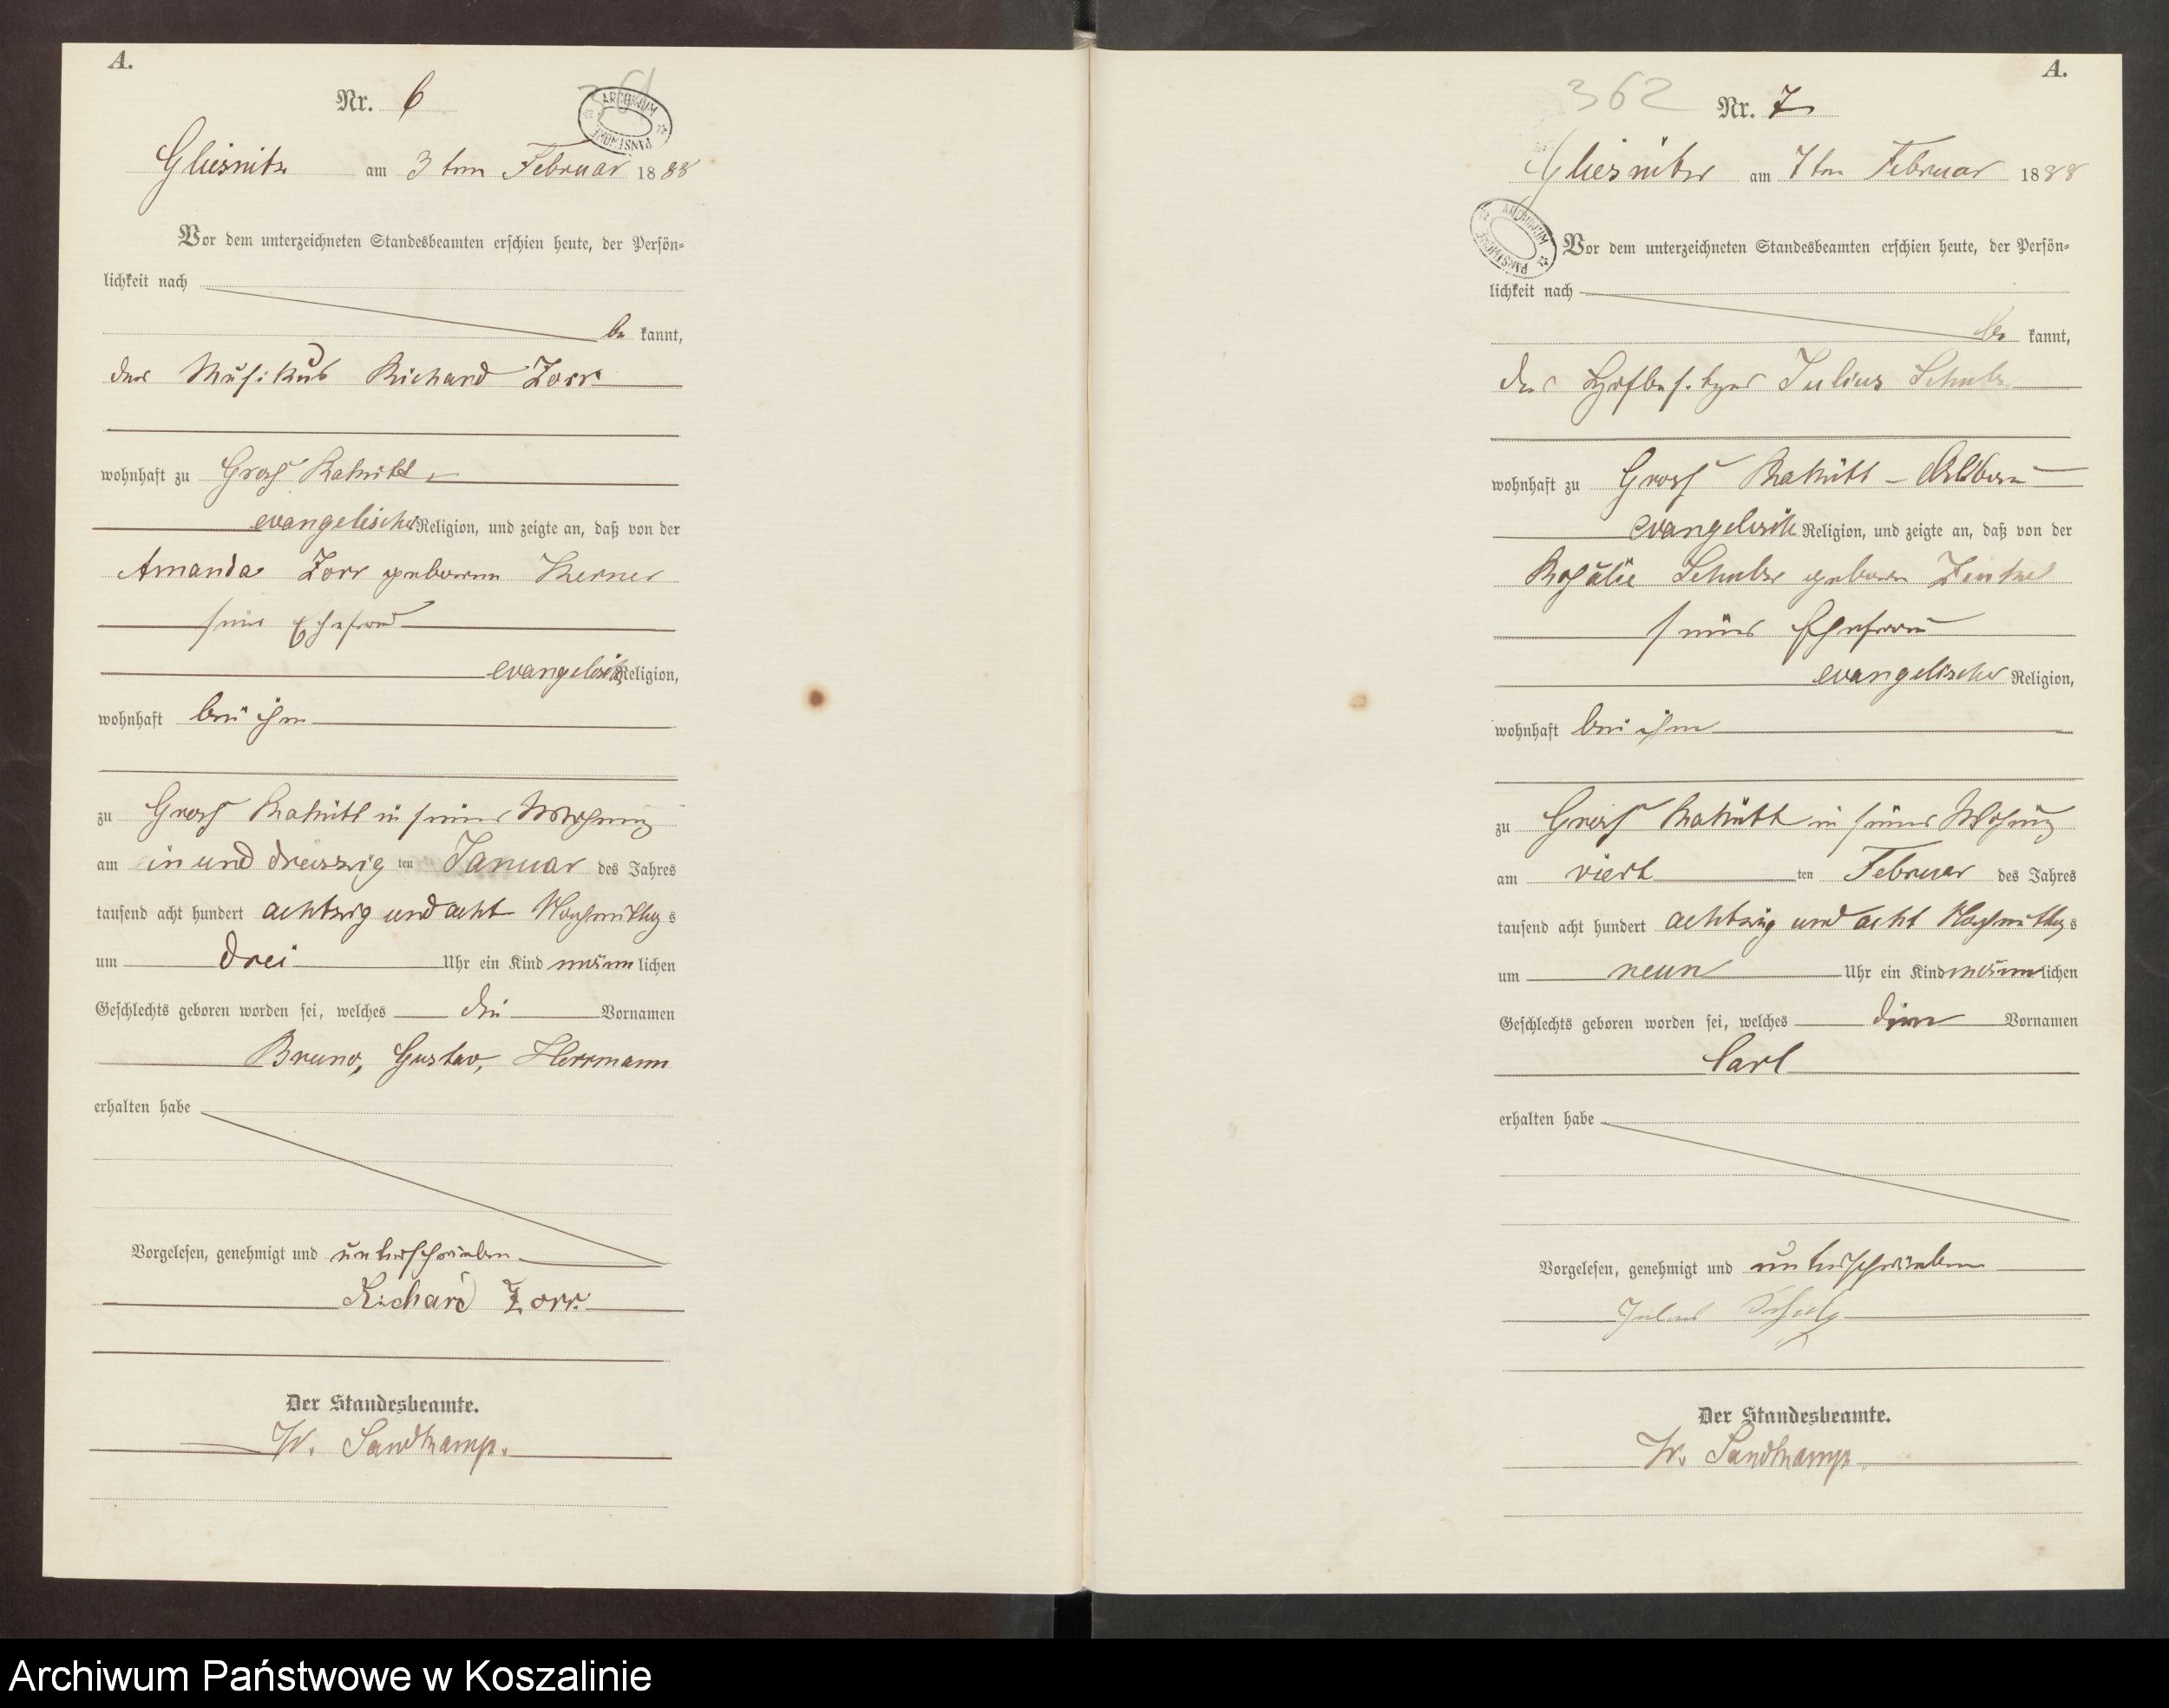 A.
Nr. 6
361
ARCHIWUM PAŃSTWOWE
Gliesnitz am 3 ten Februar 1888
Vor dem unterzeichneten Standesbeamten erschien heute, der Persön=
lichkeit nach
be kannt,
der Musikus Richard Zorr
wohnhaft zu Gross Rakitt
evangelischer Religion, und zeigte an, daß von der
Amanda Zorr geborenen Kerner
seiner Ehefrau
evangelischer Religion,
wohnhaft bei ihm
zu Gross Rakitt in seiner Wohnung
am ein und dreiszig ten Januar des Jahres
tausend acht hundert achtzig und acht Nachmittags
um drei Uhr ein Kind männlichen
Geschlechts geboren worden sei, welches die Vornamen
Bruno, Gustav, Herrmann
erhalten habe
Vorgelesen, genehmigt und unterschrieben
Richard Zorr.
Der Standesbeamte.
W. Sandkamp.
A.
362
Nr. 7
Gliesnitz am 7ten Februar 1888
ARCHIWUM PAŃSTWOWE
Vor dem unterzeichneten Standesbeamten erschien heute, der Persön=
lichkeit nach
be kannt,
der Hofbesitzer Julius Schulz
wohnhaft zu Gross Rakitt - Abbau
evangelischer Religion, und zeigte an, daß von der
Rosalie Schulz geboren
seiner Ehefrau
evangelischer Religion,
wohnhaft bei ihm
zu Gross Rakitt in seiner Wohnung
am viert ten Februar des Jahres
tausend acht hundert achtzig und acht Nachmittags
um neun Uhr ein Kind männlichen
Geschlechts geboren worden sei, welches den Vornamen
Carl
erhalten habe
Vorgelesen, genehmigt und unterschrieben
Julius Schulz
Der Standesbeamte.
W. Sandkamp.
Archiwum Państwowe w Koszalinie